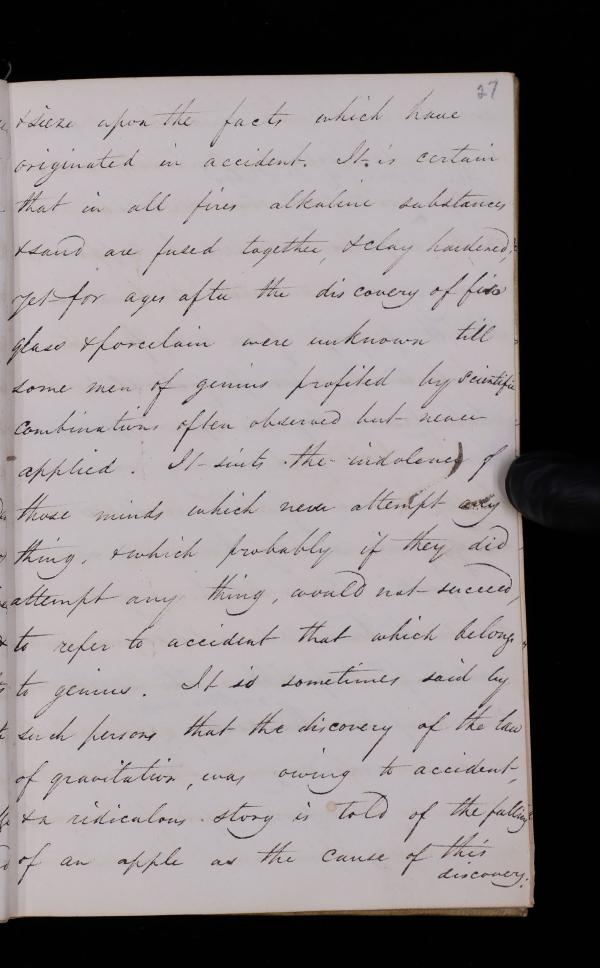 27
& sieze upon the facts which have
originated in accident. It is certain
that in all fires alkaline substances
& sand are fused together, & clay hardened;
yet for ages after the discovery of fire
glass & porcelain were unknown till
some men of genius profited by scientific
combinations often observed but never
applied. It suits the indolence of
those minds which never attempt any
thing, & which probably if they did
attempt any thing, would not succeed,
to refer to accident that which belongs
to genius. It is sometimes said by
such persons that the discovery of the law
of gravitation, was owing to accident,
& a ridiculous story is told of the falling
of an apple as the cause of this
discovery.